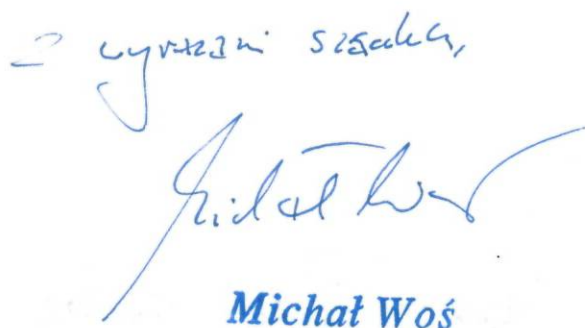 Z wyrazami szacunku,
Michał Woś
Michał Woś